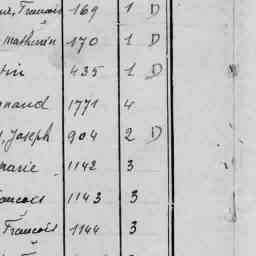 François 169 1 D
Mathurin 170 1 D
435 1 D
1771 4
Joseph 904 2 D
marie 1142 3
ancois 1143 3
François 1144 3